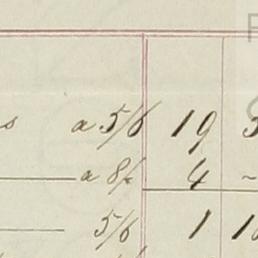 s a 5/6 19
a 8/- 4 ~
5/6 1